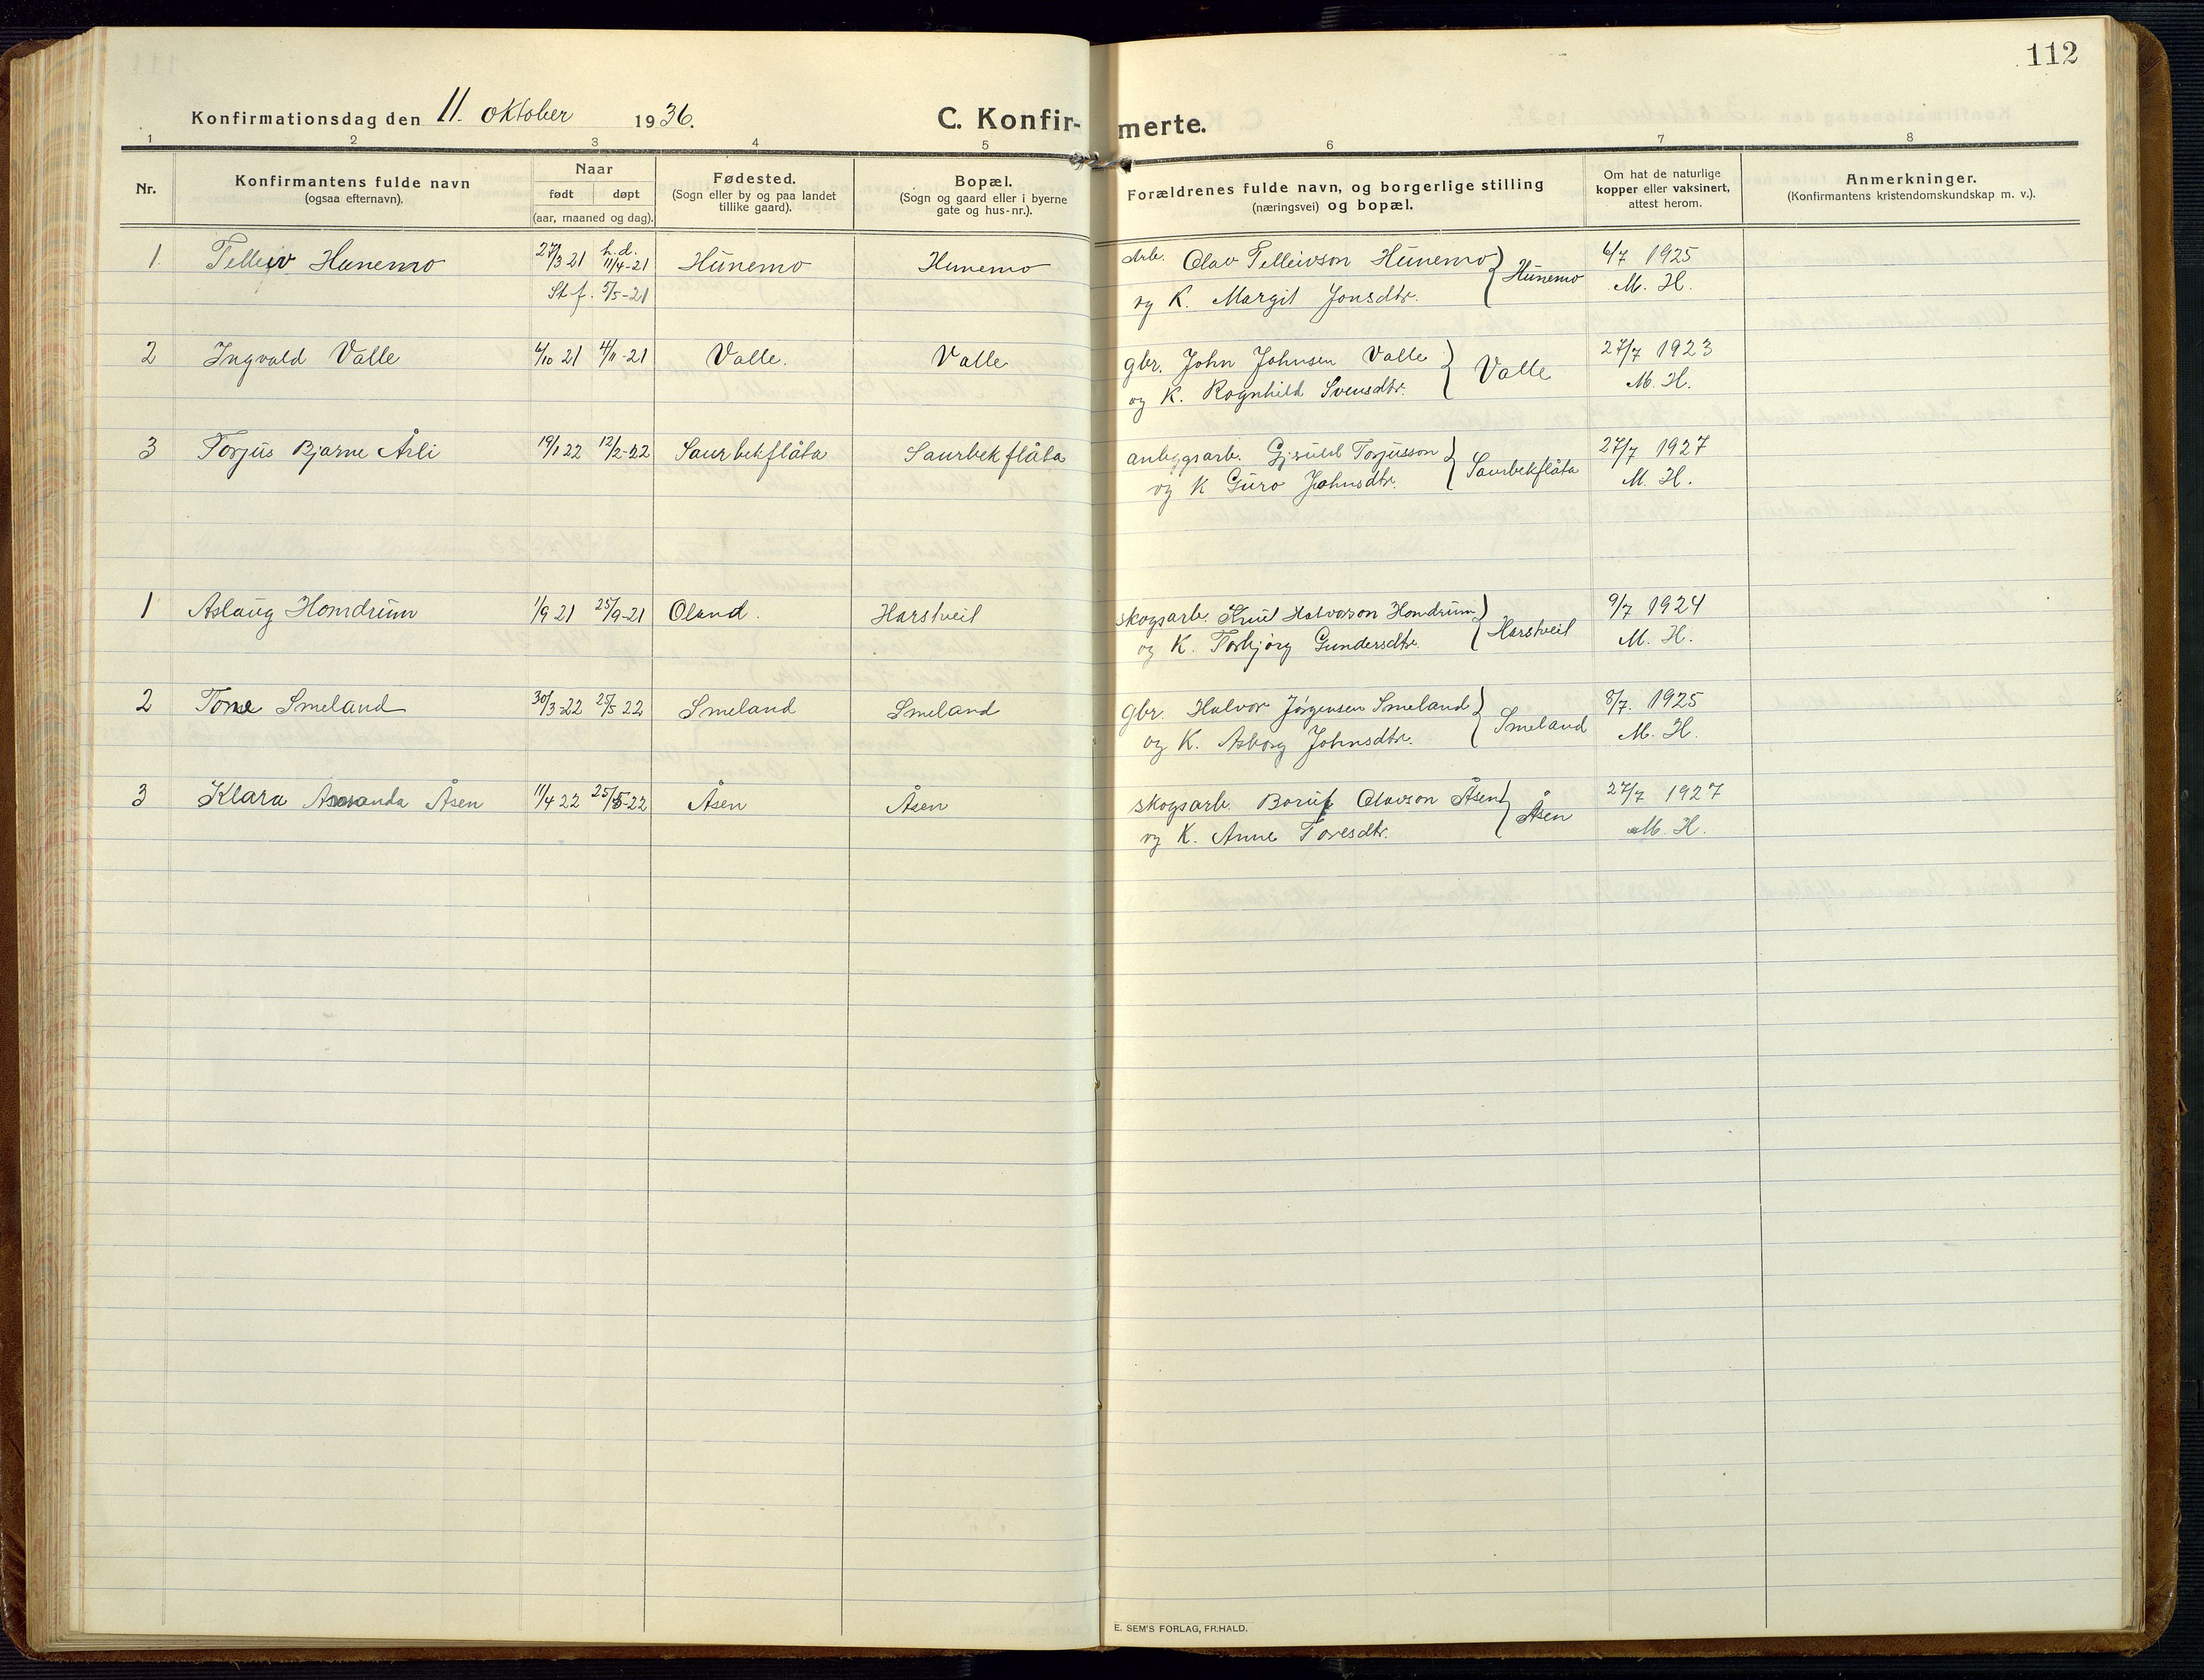 112
Konfirmationsdag den 11. oktober 1936.
C. Konfirmerte.
1 2 3 4 5 6 7 8
Nr.
Konfirmantens fulde navn
(ogsaa efternavn).
Naar
født døpt
(aar, maaned og dag).
Fødested.
(Sogn eller by og paa landet
tillike gaard).
Bopæl.
(Sogn og gaard eller i byerne
gate og hus-nr.).
Forældrenes fulde navn, og borgerlige stilling
(næringsvei) og bopæl.
Om hat de naturlige
kopper eller vaksinert,
attest herom.
Anmerkninger.
(Konfirmantens kristendomskundskap m. v.).
1. Telleiv Hunemo 27/3 21 h.d. 11/4-21 Hunemo Hunemo Arb. Olav Telleivson Hunemo } Hunemo 6/7 1925
St. f. 5/5-21 og K. Margit Jonsdtr. M. H.
2 Ingvald Valle 6/10 21 4/11-21 Valle. Valle gbr. John Johnsen Valle } Valle 27/7 1923
og K. Ragnhild Svensdtr. M. H.
3 Torjus Bjarne Årli 19/1 22 12/2-22 Saurbekflåta Saurbekflåta anleggsarb. Gjeruld Torjusson } Saurbekflåta 27/7 1927
og K Guro Johnsdtr. M. H.
1 Aslaug Homdrum 1/9 21 25/9-21 Oland. Harstveit skogsarb. Knut Halvorson Homdrum } Harstveit 9/7 1924
og K. Torbjørg Gundersdtr. M. H.
2 Tone Smeland 30/3-22 25/5 22 Smeland Smeland gbr. Halvor Jørgensen Smeland } Smeland 8/7. 1925
og K. Asborg Johnsdtr. M. H.
3 Klara Amanda Åsen 11/4 22 25/5-22 Åsen Åsen skogsarb. Olavson Åsen } Åsen 27/7 1927
og K. Anne Toresdtr. M. H.
E. SEM'S FORLAG, FR.HALD.